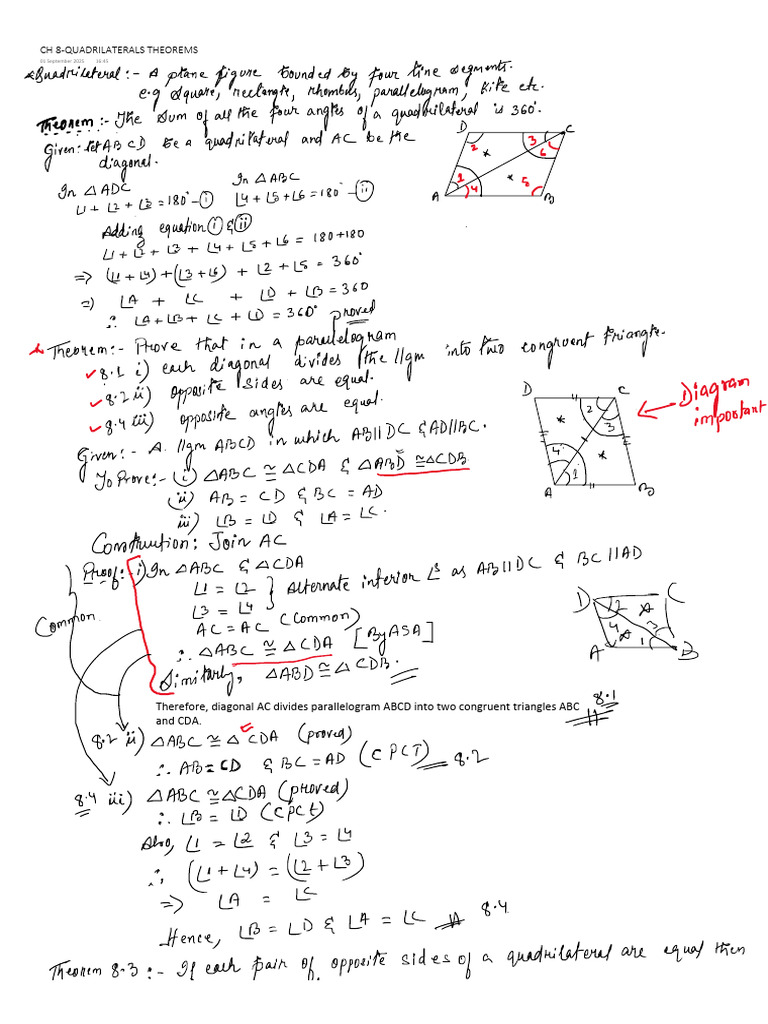 CH 8-QUADRILATERALS THEOREMS
01 September 2025 16:45
Quadrilateral :- A plane figure bounded by four line segments.
e.g square, rectangle, rhombus, parallelogram, Kite etc.
Theorem :- The sum of all the four angles of a quadrilateral is 360°.
Given: let ABCD be a quadrilateral and AC be the
diagonal.
D C
2 3 6
1 4 5
A B
In △ADC In △ABC
∠1 + ∠2 + ∠3 = 180° - (i) ∠4 + ∠5 + ∠6 = 180° - (ii)
Adding equation (i) & (ii)
∠1 + ∠2 + ∠3 + ∠4 + ∠5 + ∠6 = 180 + 180
=> (∠1 + ∠4) + (∠3 + ∠6) + ∠2 + ∠5 = 360°
=> ∠A + ∠C + ∠D + ∠B = 360
∴ ∠A + ∠B + ∠C + ∠D = 360° proved
Theorem :- Prove that in a parallelogram
8.1 i) each diagonal divides the //gm into two congruent triangle.
8.2 ii) opposite sides are equal.
8.4 iii) opposite angles are equal.
D C
2 3
4 1
A B
Diagram
important
Given :- A //gm ABCD in which AB||DC & AD||BC.
To Prove :- (i) △ABC ≅ △CDA & △ABD ≅ △CDB
(ii) AB = CD & BC = AD
iii) ∠B = ∠D & ∠A = ∠C.
Construction: Join AC
Proof: i) In △ABC & △CDA
∠1 = ∠2
∠3 = ∠4 } Alternate interior ∠s as AB||DC & BC||AD
AC = AC (Common)
∴ △ABC ≅ △CDA [By ASA]
Similarly, △ABD ≅ △CDB.
Common
D C
2 4 3 1
A B
Therefore, diagonal AC divides parallelogram ABCD into two congruent triangles ABC
and CDA.
8.1
8.2 ii) △ABC ≅ △CDA (proved)
∴ AB = CD & BC = AD (CPCT) 8.2
8.4 iii) △ABC ≅ △CDA (proved)
∴ ∠B = ∠D (CPCT)
Also, ∠1 = ∠2 & ∠3 = ∠4
∴ (∠1 + ∠4) = (∠2 + ∠3)
=> ∠A = ∠C
Hence, ∠B = ∠D & ∠A = ∠C 8.4
Theorem 8.3 :- If each pair of opposite sides of a quadrilateral are equal then